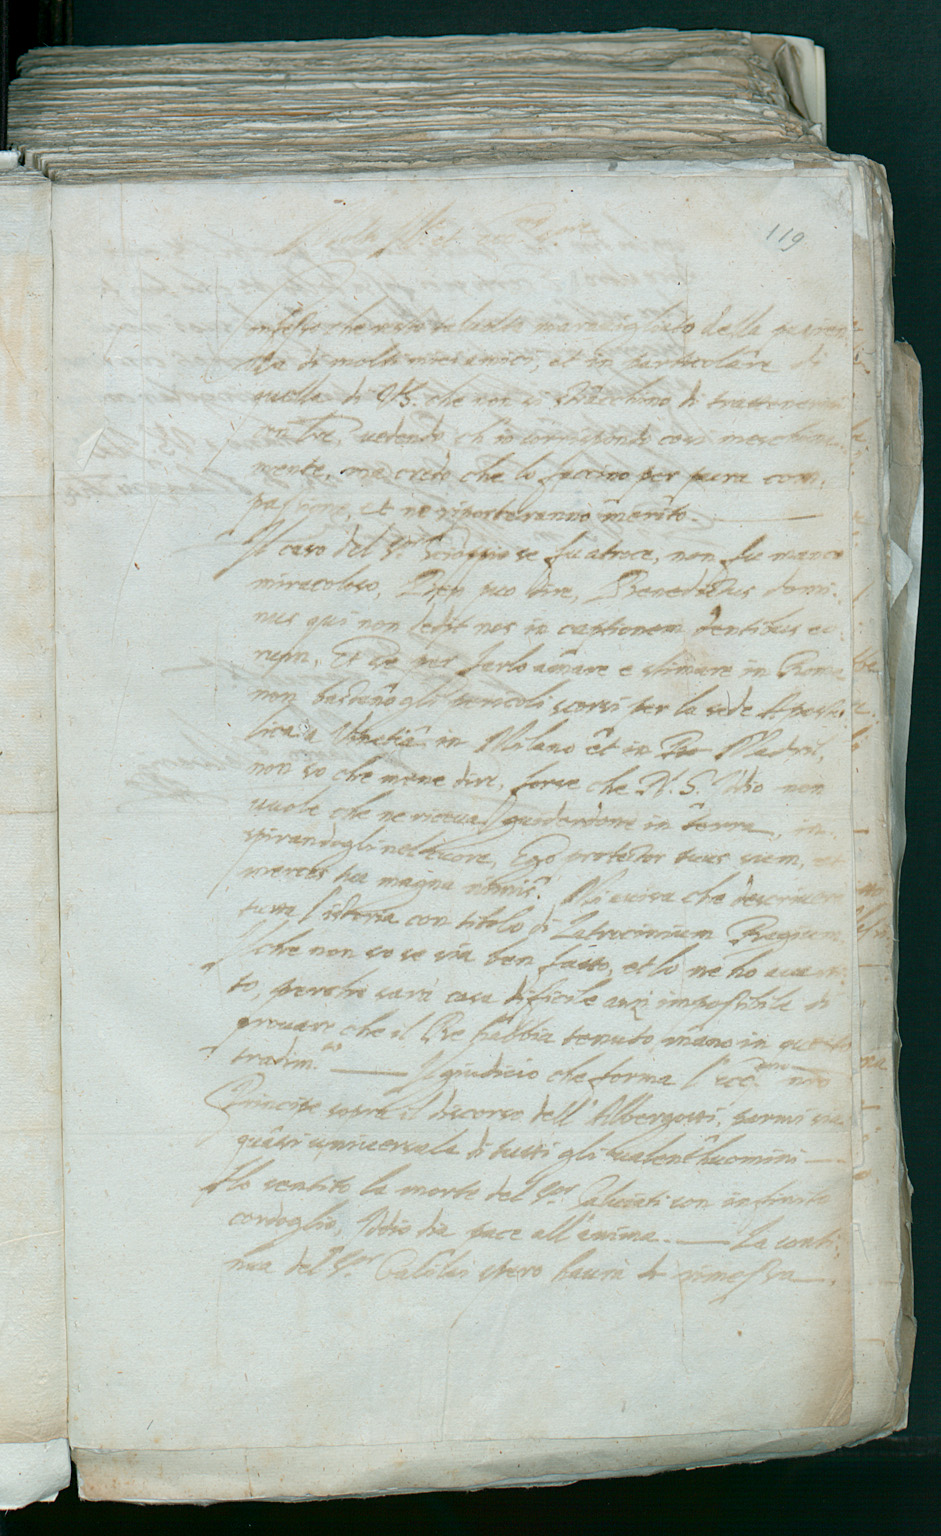 119
Molto Ill.re et
Confesso che resto talvolta maravigliato della patien
tia di molti miei amici, et in particolare di
quella di VS. che non si stracchino di trattenersi
con l're, vedendo ch'io corrispondo così meschina
mente, ma credo che lo faccino per pura com
passione, et ne riporteranno merito.
Il caso del S.r Scioppio se fu atroce, non fu manco
miracoloso, Ben puo dire, Benedictus Domi
nus qui non dedit nos in captionem dentibus eo
rum. Et se per farlo amare e stimare in Roma
non bastano gli pericoli scorsi per la sede Aposto
lica a Venetia in Milano et in Madril,
non so che mene dire, forse che N. S. Idio non
vuole che ne riceva guiderdone in terra, in
spirandogli nel cuore, Ego protector tuus sum, et
merces tua magna nimis. Mi avisa che descrivera
tutta l'istoria con titolo di Latrocinium Regium
che non so se sia ben fatto, et lo ne ho avverti
to, perche sarà cosa dificile anzi impossibile di
provare che il Re habbia tenuto mano in questo
tradim.to Il giudicio che forma l'ecc.mo nr̃o
Principe sovra il discorso dell'Albergotti, parmi sia
quasi universale di tutti gli valenthuomini
Ho sentito la morte del S.r Salviati con infinito
cordoglio, Iddio dia pace all'anima. La conti
nua del S.r Galilei spero havrà di rimessa